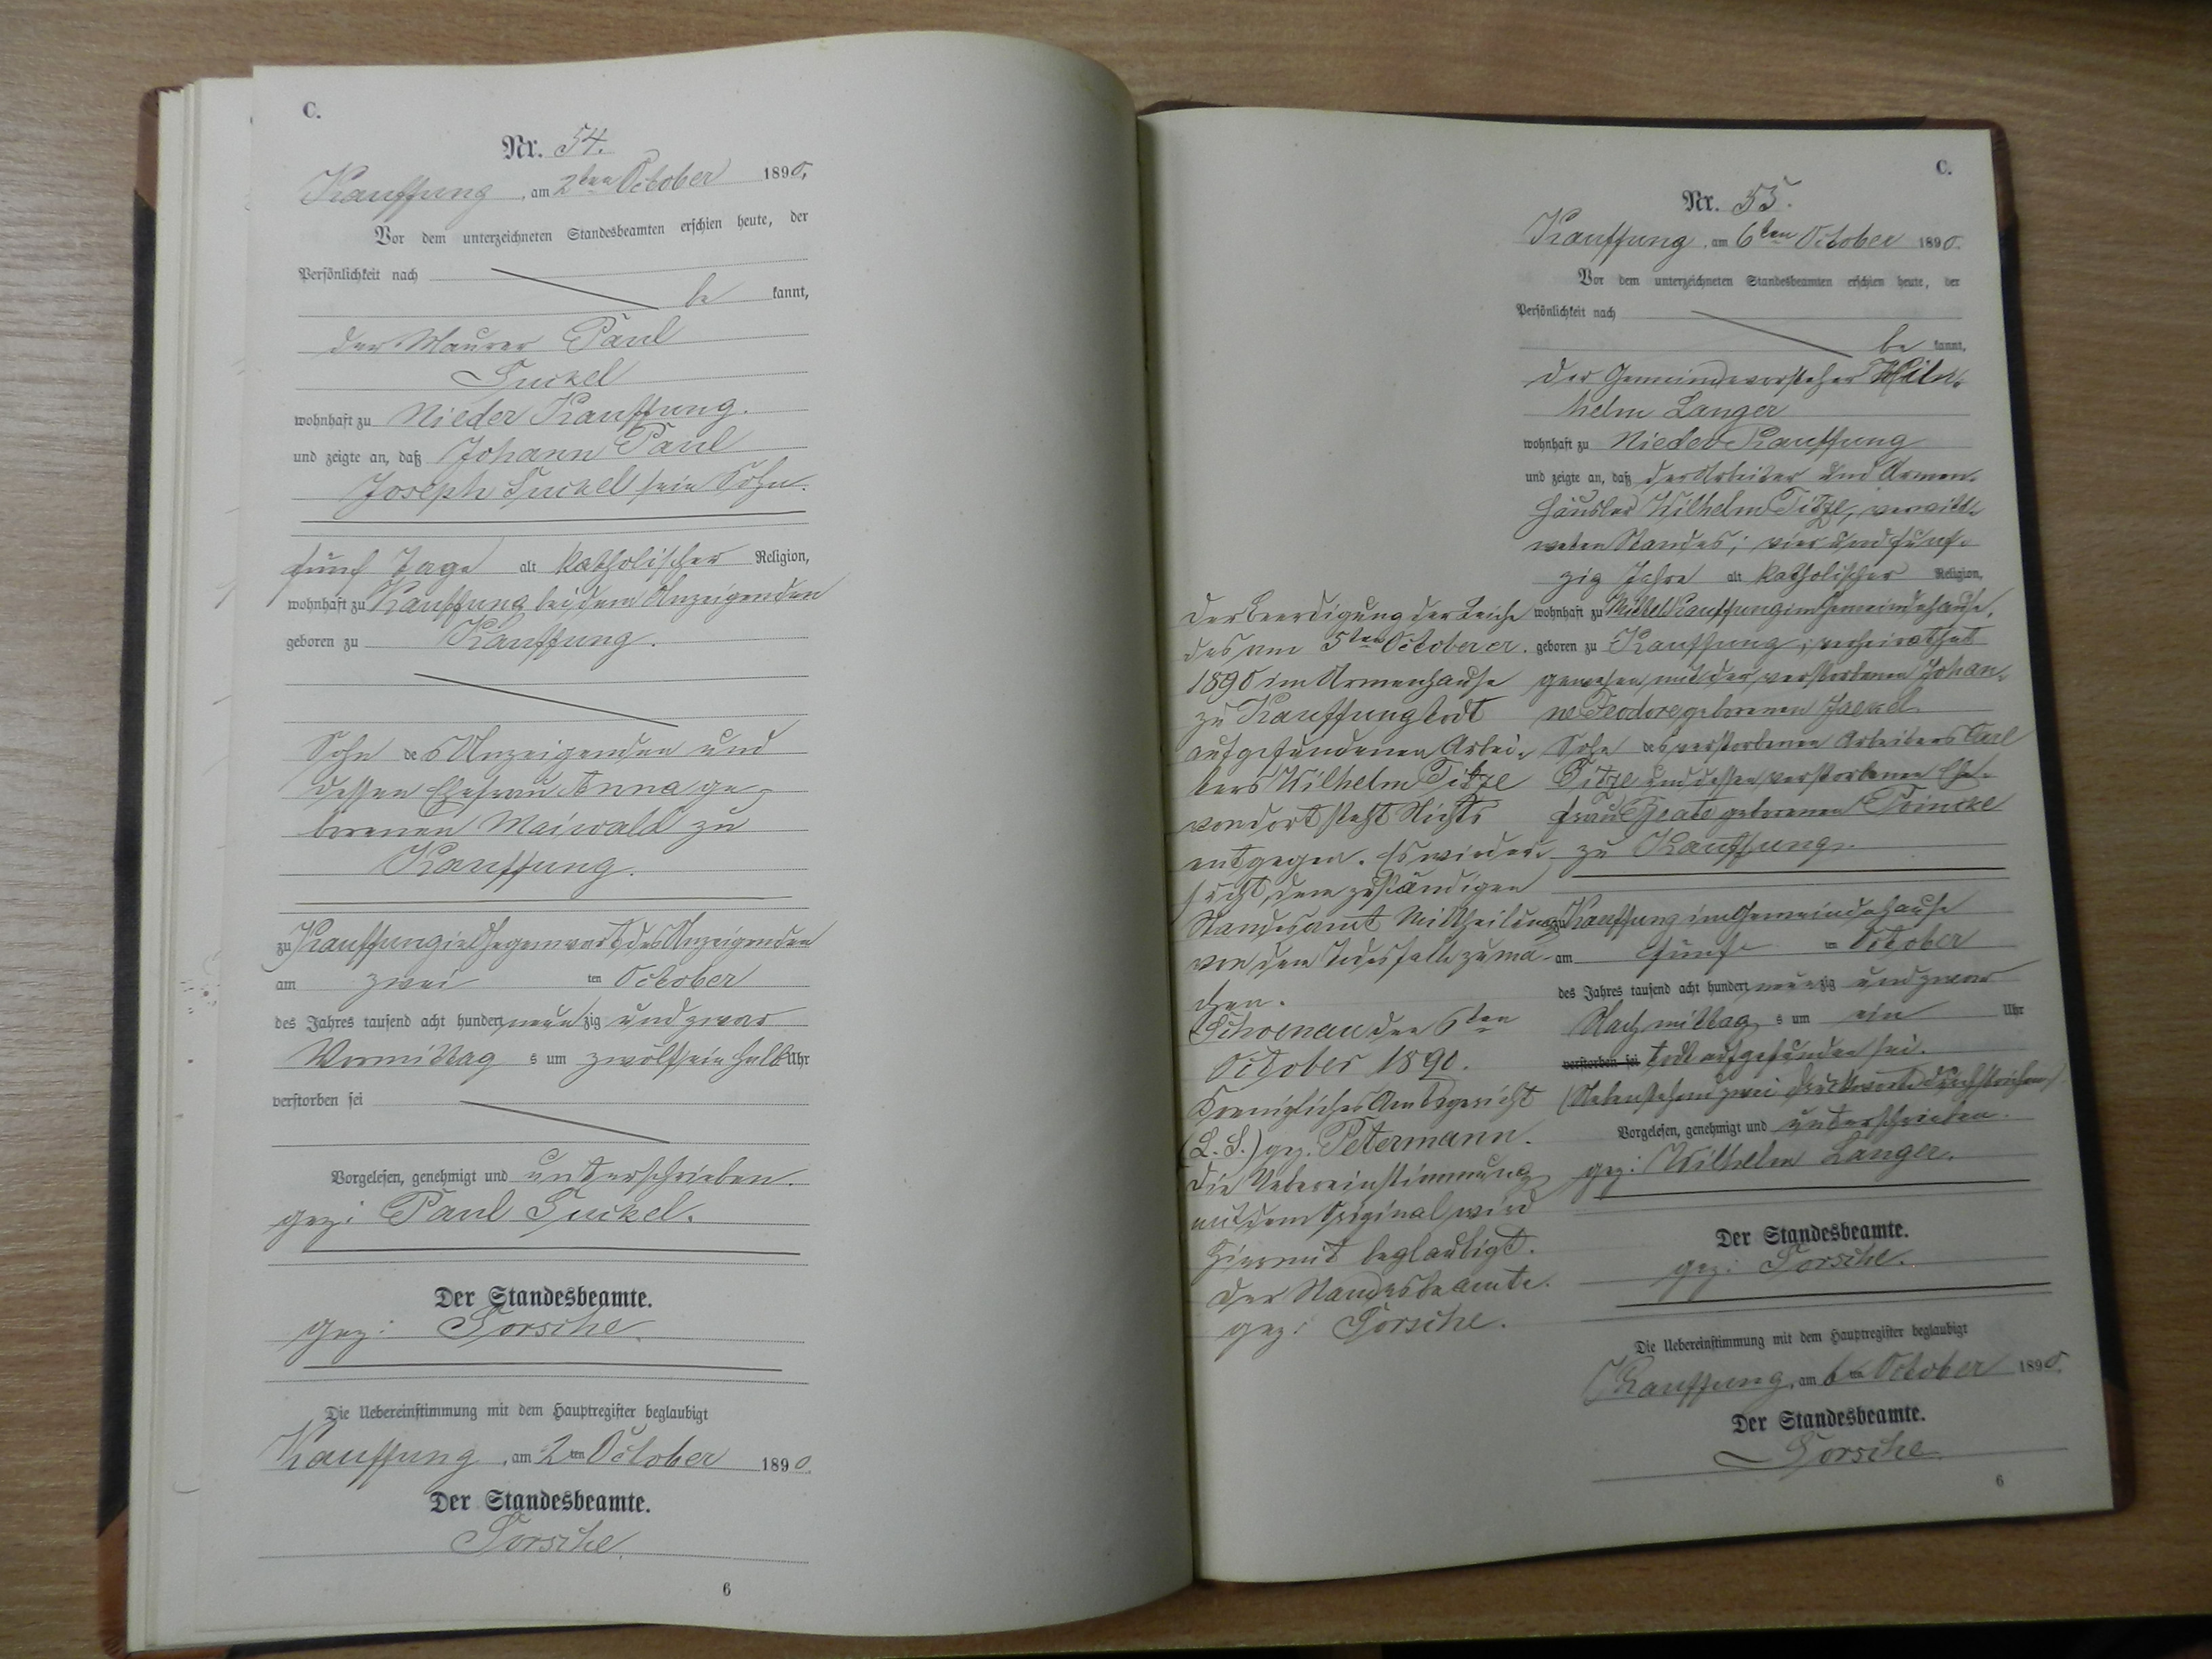 C.
Nr. 54.
Kauffung, am 2ten October 1890.
Vor dem unterzeichneten Standesbeamten erschien heute, der
Persönlichkeit nach
be kannt,
der Maurer Paul
wohnhaft zu Nieder Kauffung.
und zeigte an, daß Johann Paul
Joseph sein Sohn.
fünf Tage alt katholischer Religion,
wohnhaft zu Kauffung bei dem Anzeigenden
geboren zu Kauffung.
Sohn des Anzeigenden und
dessen Ehefrau Anna ge-
borenen Maiwald zu
Kauffung.
zu Kauffung in Gegenwart des Anzeigenden
am zwei ten October
des Jahres tausend acht hundert neunzig und zwar
Vormittag s um zwölfeinhalb Uhr
verstorben sei
Vorgelesen, genehmigt und unterschrieben.
gez: Paul
Der Standesbeamte.
gez: Torsche.
Die Uebereinstimmung mit dem Hauptregister beglaubigt
Kauffung, am 2ten October 1890.
Der Standesbeamte.
Torsche.
6
C.
Nr. 55.
Kauffung, am 6ten October 1890.
Vor dem unterzeichneten Standesbeamten erschien heute, der
Persönlichkeit nach
be kannt,
der Gemeindevorsteher Wil-
helm Langer
wohnhaft zu Nieder Kauffung
und zeigte an, daß der Arbeiter und Armen-
häusler Wilhelm Titze, verwitt-
weten Standes; vier und fünf-
zig Jahre alt katholischer Religion,
wohnhaft zu Mittel Kauffung im Gemeindehause,
geboren zu Kauffung; verheirathet
gewesen mit der verstorbenen Johan-
ne Teodore geborenen Jaekel
Sohn des verstorbenen Arbeiters Carl
Titze und dessen verstorbenen Ehe-
frau Beate geborenen
zu Kauffung.
zu Kauffung im Gemeindehause
am fünf ten October
des Jahres tausend acht hundert neunzig und zwar
Nachmittag s um ein Uhr
verstorben sei todt aufgefunden sei.
(Nebenstehend zwei Druckworte durchstrichen)
Vorgelesen, genehmigt und unterschrieben.
gez: Wilhelm Langer.
Der Standesbeamte.
gez: Torsche.
Die Uebereinstimmung mit dem Hauptregister beglaubigt
Kauffung, am 6ten October 1890.
Der Standesbeamte.
Torsche.
6
Der Beerdigung der Leiche
des am 5ten October cr.
1890 im Armenhause
zu Kauffung todt
aufgefundenen Arbei-
ters Wilhelm Titze
von dort steht Nichts
entgegen. Es wird er-
sucht, dem zuständigen
Standesamt Mittheilung
von dem Todesfalle zu ma-
chen.
Schoenau den 6ten
October 1890.
Koenigliches Amtsgericht
(L. S.) gez. Petermann.
Die Uebereinstimmung
mit dem Original wird
hiermit beglaubigt.
Der Standesbeamte.
gez: Torsche.